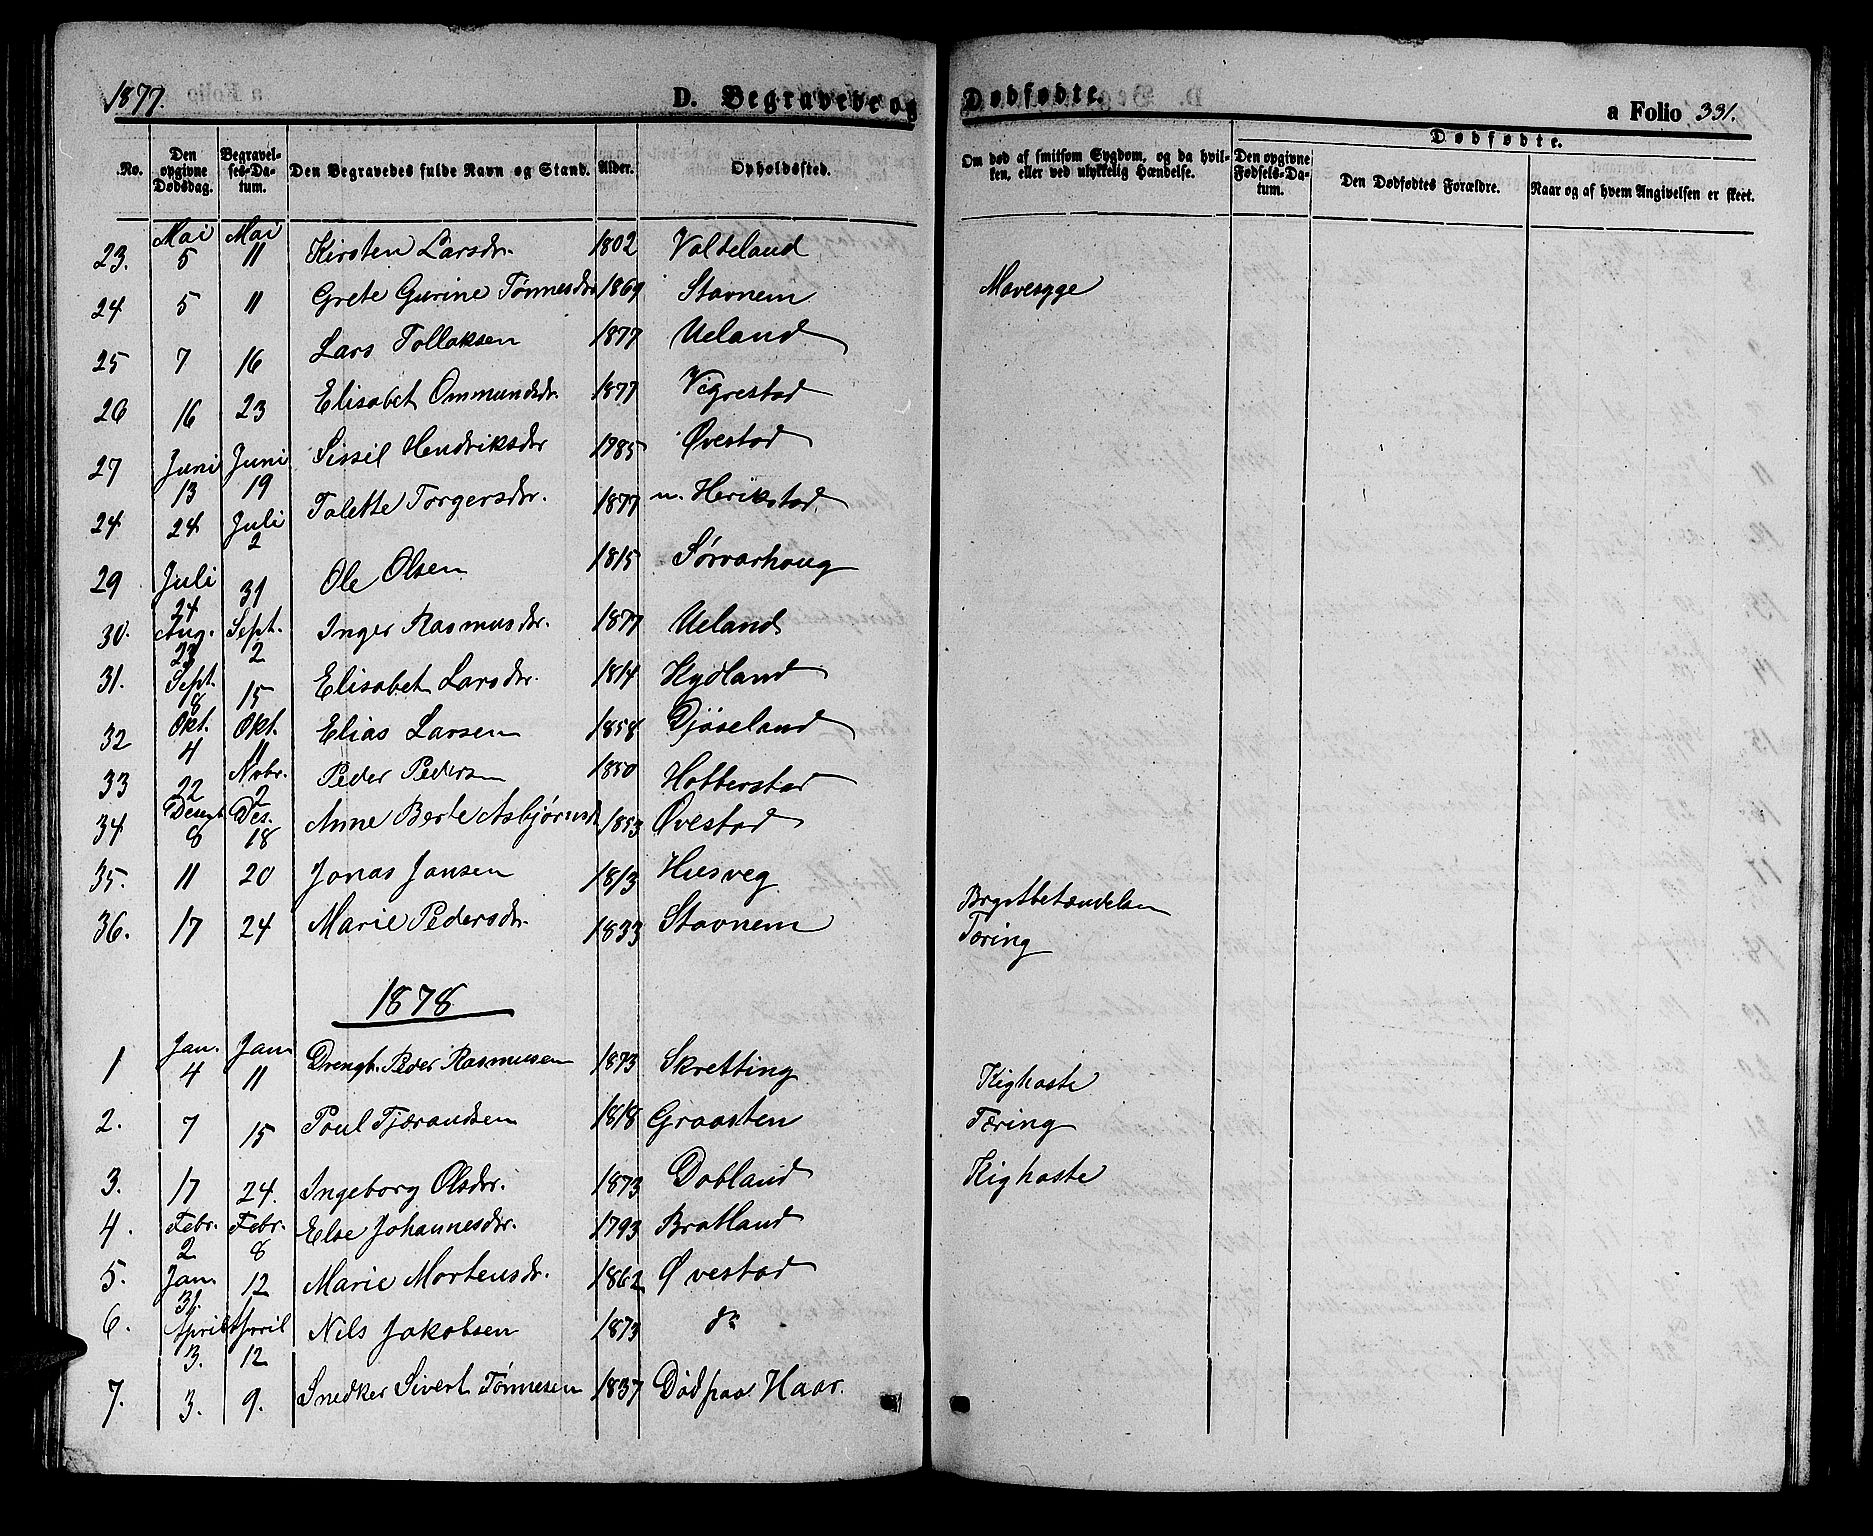 1877. D. Begravede og Dødfødte. a Folio 331.
No. Den opgivne Dødsdag. Begravelses-Datum. Den Begravedes fulde Navn og Stand. Alder. Opholdssted. Om død af smitsom Sygdom, og da hvilken, eller ved ulykkelig Hændelse. Dødfødte. Den opgivne Fødsels-Datum. Den Dødfødtes Forældre. Naar og af hvem Angivelsen er skeet.
23. Mai 5 Mai 11 Kirsten Larsdr. 1802 Valdeland
24 5 11 Grete Gurine Tønnesdr 1869 Stavnem Mavesyge
25 7 16 Lars Tollaksen 1877 Ueland
26 16 23 Elisabet Ommundsdr. 1877 Vigrestad
27 Juni 13 Juni 19 Sissil Hendriksdr 1785 Øvestad
24 24 Juli 2 Talette Torgersdr. 1877 n. Herikstad
29 Juli 24 31 Ole Olsen 1815 Sørvarhaug
30. Aug. 23 Sept. 2 Inger Rasmusdr. 1877 Ueland
31. Sept. 8 15 Elisabet Larsdr. 1814 Kydland
32 Okt. 4 Okt. 11 Elias Larsen 1858 Djøseland
33 22 Nvbr. 2 Peder Pedersen 1850 Hobberstad
34 8 Des. 18 Anne Berte Asbjørnsd 1853 Øvestad
35. 11 20 Jonas Jansen 1813 Husveg Brystbetændelse
36. 17 24 Marie Pedersdr. 1833 Stavnem Tæring
1878
1 Jan. 4 Jan 11 Drengb. Peder Rasmussen 1873 Skretting Kighoste
2. 7 15 Poul Tjærandsen 1818 Graasten Tæring
3. 17 24. Ingeborg Olsdr. 1873 Dobland Kighoste
4. Febr. 2 Febr. 8 Else Johannesdr. 1793 Bratland
5. Jan. 31. 12 Marie Mortensdr. 1862 Øvestad
6. April 3. April 12 Nils Jakobsen 1873 do
7. 3. 9. Snedker Sivert Tønnesen 1837 Død paa Haar.